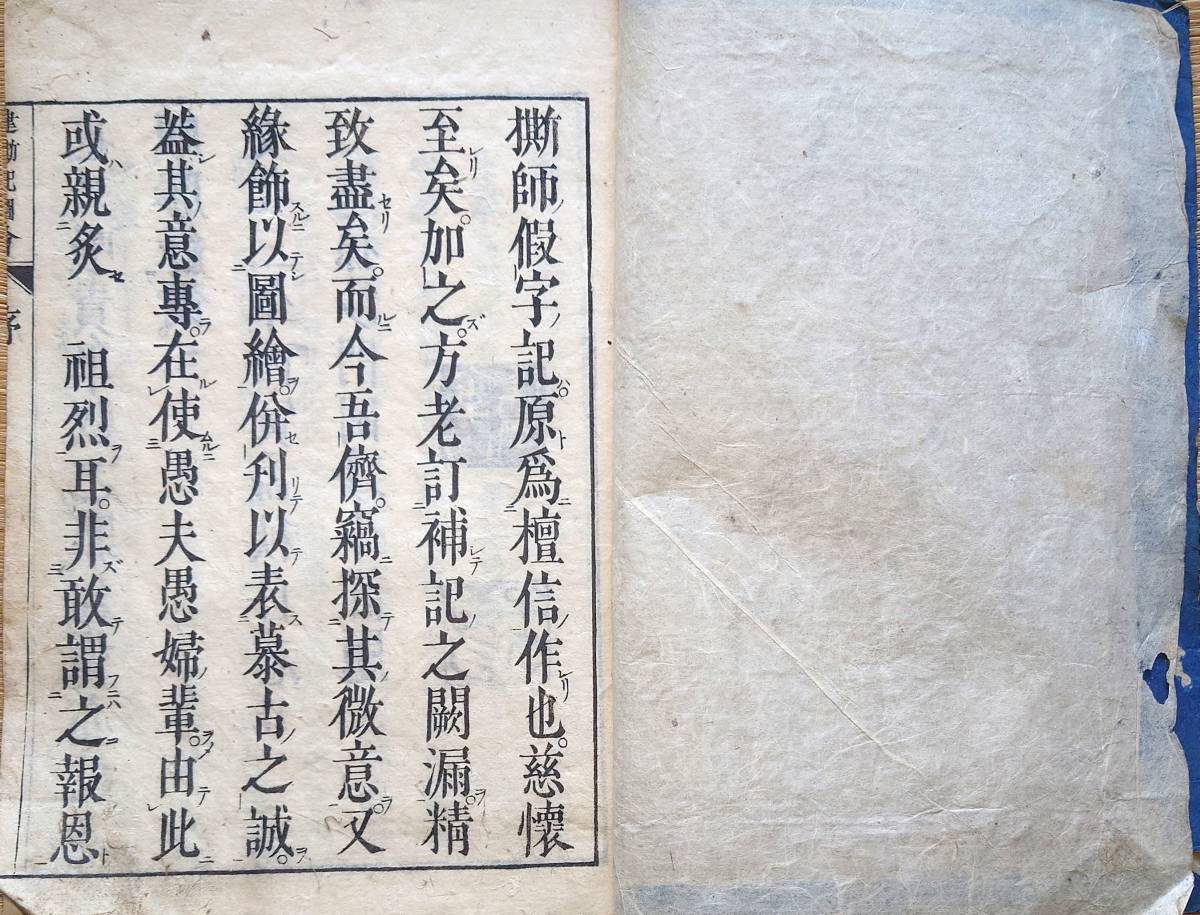 撕師假字記。原爲檀信作也。慈懷
至矣。加之。方老訂補記之闕漏。精
致盡矣。而今吾儕。竊探其微意。又
緣飾以圖繪。併刋以表慕古之誠。
葢其意專。在使愚夫愚婦輩。由此
或親炙　祖烈耳。非敢謂之報恩